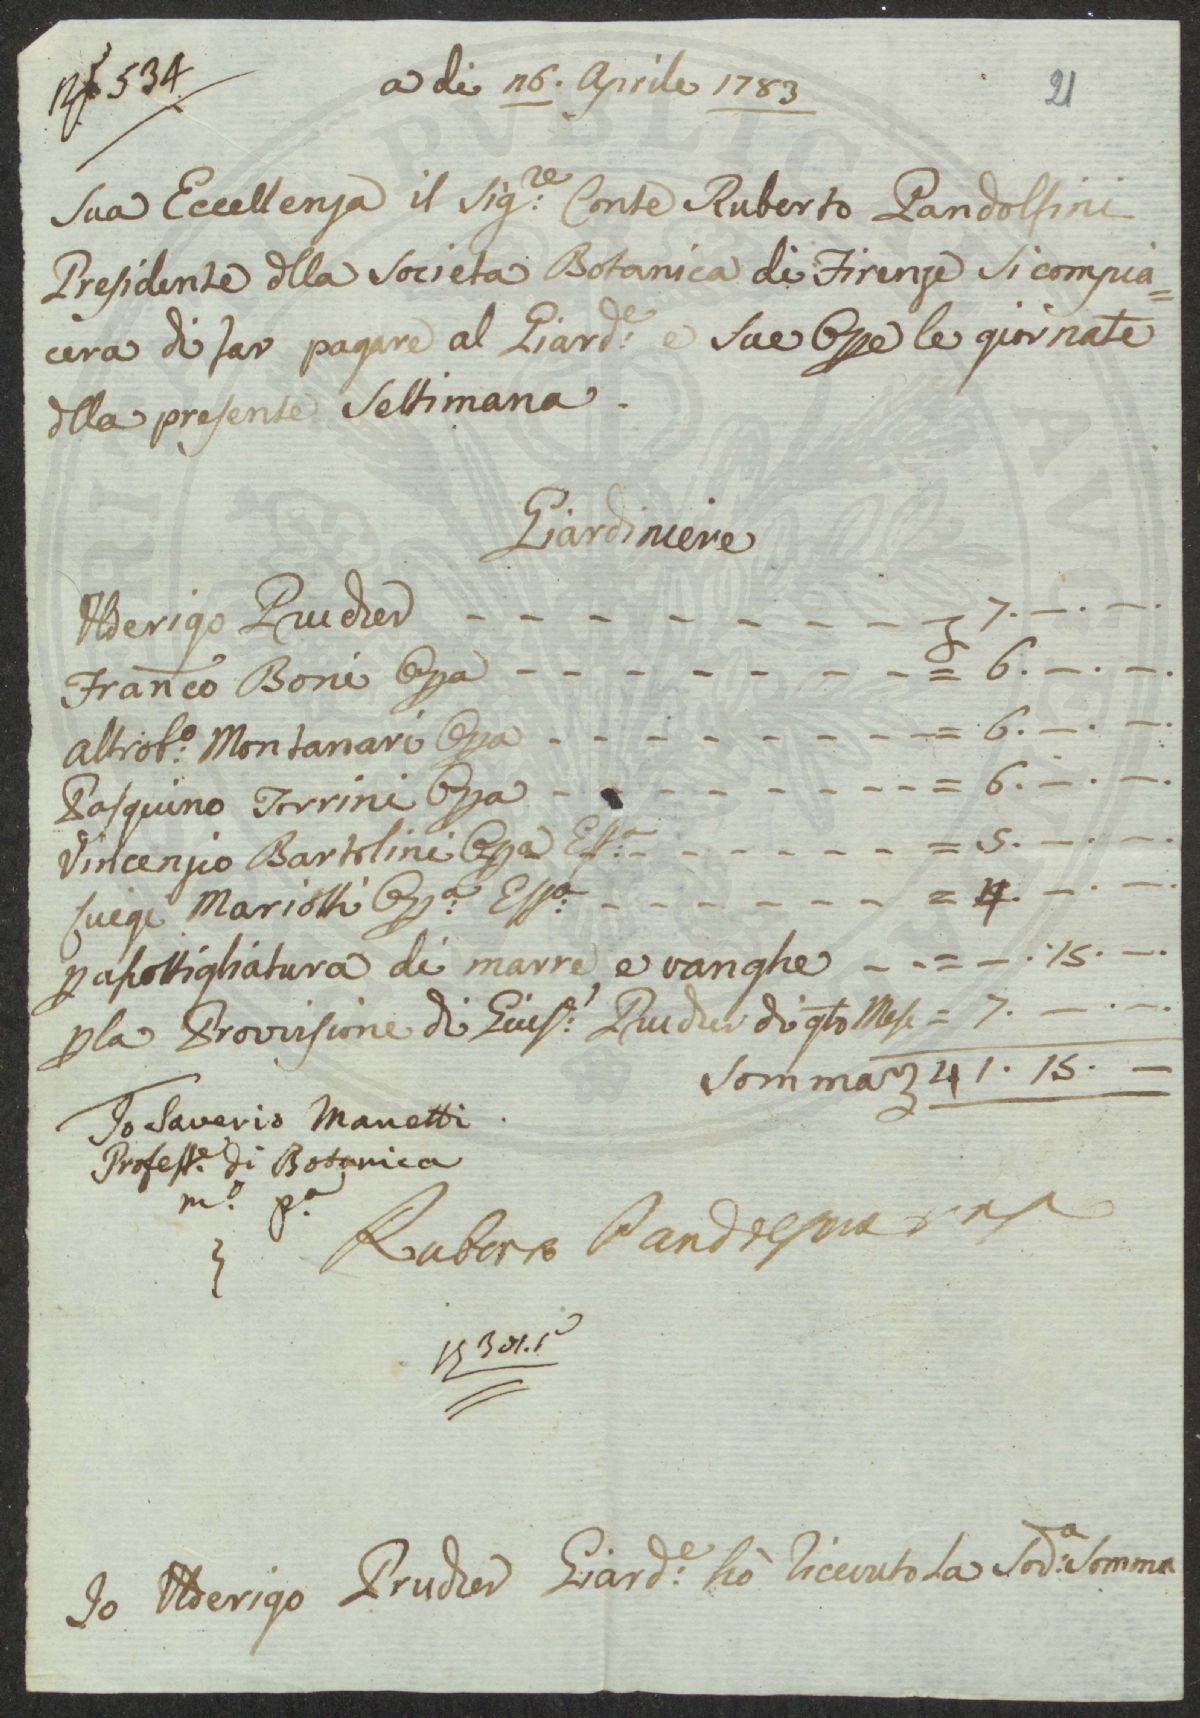 N.° 534
a di 26. Aprile 1783
21
Sua Eccellenza il Sig.re Conte Ruberto Pandolfini
Presidente dlla Societa Botanica di Firenze si compia=
cera di far pagare al Giard.e e sue Oppe le giornate
dlla presente Settimana.
Giardiniere
Ulderigo Prucher - - - - - - - - 7. —. —.
Franco Boni Oppa - - - - - - - = 6. —. —.
altrob.o Montanari Oppa - - - - - - - = 6. —. —.
Pasquino Torrini Oppa - - - - - - - = 6. —. —.
Vincenzio Bartolini Oppa Ess.a - - - - - - = 5. —. —.
Luigi Mariotti Opp.a Ess.a - - - - - - = 4. —. —.
p asottigliatura di marre, e vanghe - - = —. 15. —.
pla Provisione di Gius.e Prucher di qto Mese = 7. —. —.
Somma 41. 15. —
Io Saverio Manetti
Profess.e di Botanica
m.o p.a
Ruberto Pandolfini
Io Ulderigo Prucher Giard.e hò Ricevuto La Sod.a Somma
PUBLIC